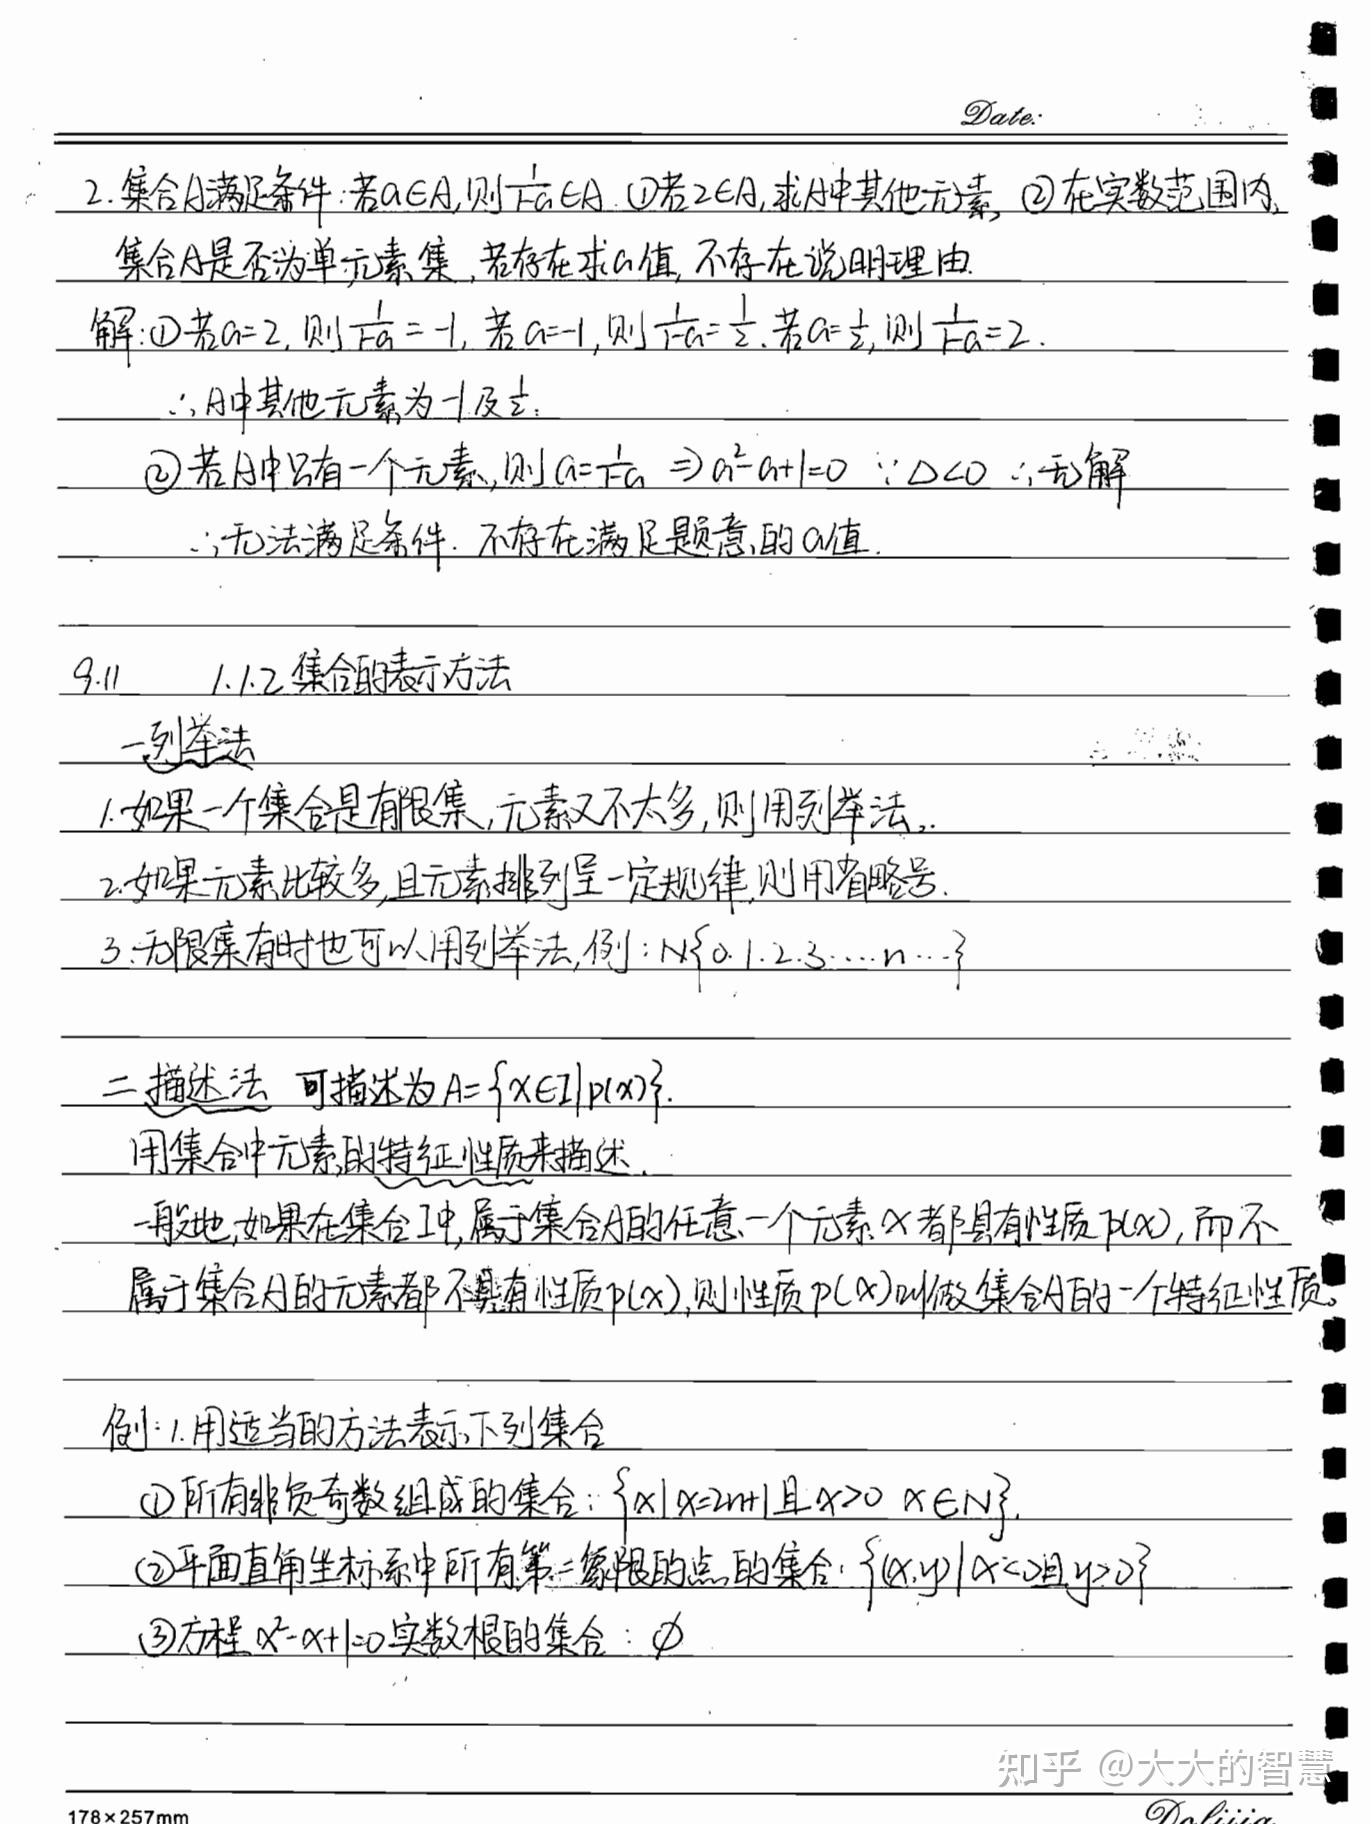 Date:
2.集合A满足条件:若a∈A,则1/(1-a)∈A.①若2∈A,求A中其他元素,②在实数范围内,
集合A是否为单元素集,若存在求a值,不存在说明理由.
解:①若a=2,则1/(1-a)=-1,若a=-1,则1/(1-a)=1/2.若a=1/2,则1/(1-a)=2.
∴A中其他元素为-1及1/2.
②若A中只有一个元素,则a=1/(1-a)⇒a²-a+1=0 ∵△<0 ∴无解
∴无法满足条件.不存在满足题意的a值.
9.11 1.1.2集合的表示方法
一列举法
1.如果一个集合是有限集,元素又不太多,则用列举法.
2.如果元素比较多,且元素排列呈一定规律,则用省略号.
3.无限集有时也可以用列举法,例:N{0.1.2.3.....n...}
二描述法 可描述为A={x∈I|p(x)}.
用集合中元素的特征性质来描述.
一般地,如果在集合I中,属于集合A的任意一个元素x都具有性质p(x),而不
属于集合A的元素都不具有性质p(x),则性质p(x)叫做集合A的一个特征性质。
例:1.用适当的方法表示下列集合
①所有非负奇数组成的集合:{x|x=2n+1且x>0 x∈N}.
②平面直角坐标系中所有第二象限的点的集合:{(x,y)|x<0且y>0}
③方程x²-x+1=0实数根的集合:∅
知乎 @大大的智慧
178×257mm